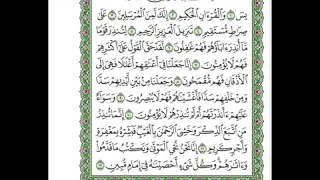 يسٓ ۝١ وَٱلْقُرْءَانِ ٱلْحَكِيمِ ۝٢ إِنَّكَ لَمِنَ ٱلْمُرْسَلِينَ ۝٣ عَلَىٰ
صِرَٰطٍ مُّسْتَقِيمٍ ۝٤ تَنزِيلَ ٱلْعَزِيزِ ٱلرَّحِيمِ ۝٥ لِتُنذِرَ قَوْمًا
مَّآ أُنذِرَ ءَابَآؤُهُمْ فَهُمْ غَٰفِلُونَ ۝٦ لَقَدْ حَقَّ ٱلْقَوْلُ عَلَىٰٓ أَكْثَرِهِمْ
فَهُمْ لَا يُؤْمِنُونَ ۝٧ إِنَّا جَعَلْنَا فِىٓ أَعْنَٰقِهِمْ أَغْلَٰلًا فَهِىَ إِلَى
ٱلْأَذْقَانِ فَهُم مُّقْمَحُونَ ۝٨ وَجَعَلْنَا مِنۢ بَيْنِ أَيْدِيهِمْ سَدًّا
وَمِنْ خَلْفِهِمْ سَدًّا فَأَغْشَيْنَٰهُمْ فَهُمْ لَا يُبْصِرُونَ ۝٩ وَسَوَآءٌ
عَلَيْهِمْ ءَأَنذَرْتَهُمْ أَمْ لَمْ تُنذِرْهُمْ لَا يُؤْمِنُونَ ۝١٠ إِنَّمَا تُنذِرُ
مَنِ ٱتَّبَعَ ٱلذِّكْرَ وَخَشِىَ ٱلرَّحْمَٰنَ بِٱلْغَيْبِ فَبَشِّرْهُ بِمَغْفِرَةٍ
وَأَجْرٍ كَرِيمٍ ۝١١ إِنَّا نَحْنُ نُحْىِ ٱلْمَوْتَىٰ وَنَكْتُبُ مَا قَدَّمُوا۟
وَءَاثَٰرَهُمْ وَكُلَّ شَىْءٍ أَحْصَيْنَٰهُ فِىٓ إِمَامٍ مُّبِينٍ ۝١٢